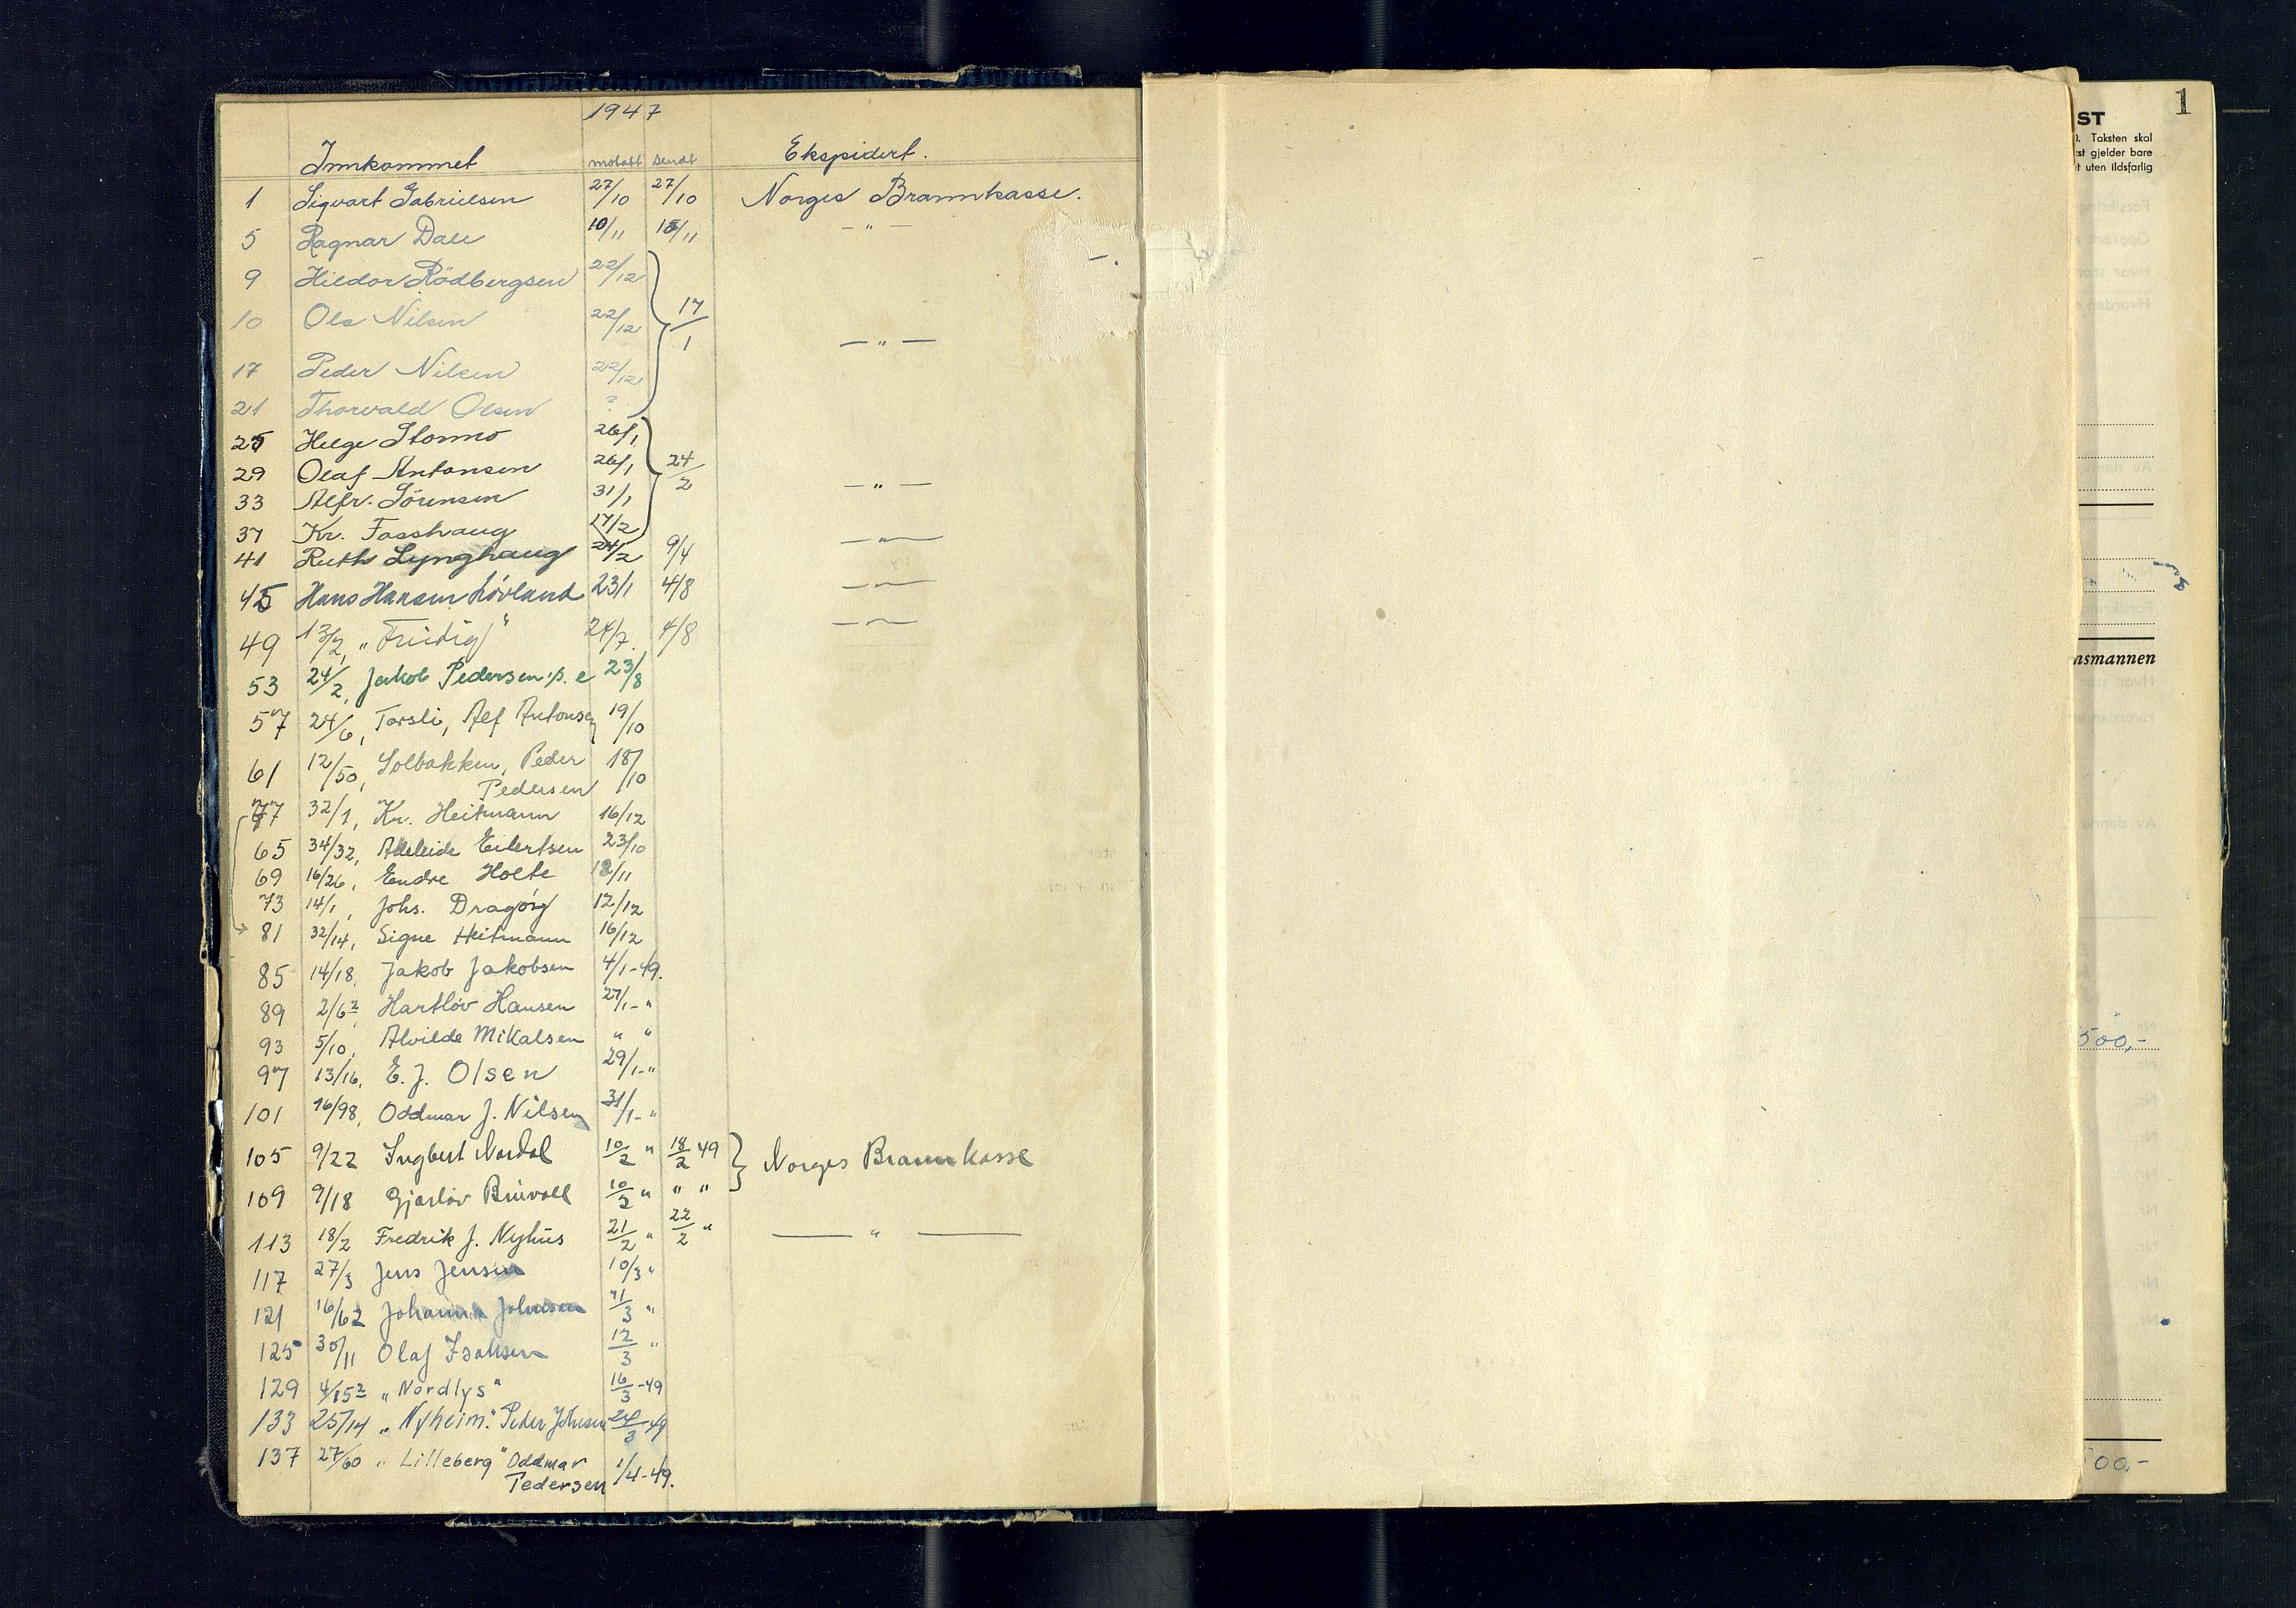 1947
Innkommet motatt sendt Ekspidert.
1 Sigvart Gabrielsen 27/10 27/10 Norges Brannkasse.
5 Ragnar Dale 10/11 15/11 — " —
9 Hildor Rödbergsen 22/12
10 Ole Nilsen 22/12 17/1 — " —
17 Peder Nilsen 22/12
21 Thorvald Olsen ?
25 Helge Stormo 26/1
29 Olaf Antonsen 26/1 24/2
33 Alfr. Sörensen 31/1 — " —
37 Kr. Fosshaug 17/2
41 Ruth Lynghaug 24/2 9/4 — " —
45 Hans Hansen Lövland 23/1 4/8 — " —
49 13/2, "Fridig" 24/7. 4/8 — " —
53 24/2, Jakob Pedersen p. e 23/8
57 24/6, Torsli, Alf Antonsen 19/10
61 12/50, Solbakken, Peder 18/10
Pedersen
77 32/1, Kr. Heitmann 16/12
65 34/32, Adeleide Eilertsen 23/10
69 16/26, Endre Holte 18/11
73 14/1, Johs. Dragöy 12/12
81 32/14, Signe Heitmann 16/12
85 14/18, Jakob Jakobsen 4/1-49.
89 2/62, Hartlöv Hansen 27/1- "
93 5/10, Alvilde Mikalsen " "
97 13/16, E. J. Olsen 29/1- "
101 16/98, Oddmar J. Nilsen 31/1- "
105 9/22 Ingbert Nordal 10/2 " 18/2 49 Norges Brannkasse
109 9/18 Gjarlöv Brüvoll 10/2 " " "
113 18/2 Fredrik J. Nyhus 21/2 " 22/2 " — " —
117 27/3 Jens Jensen 10/3 "
121 16/62 Johanna Johnsen 11/3 "
125 30/11 Olaf Isaksen 12/3 "
129 4/152 "Nordlys" 16/3-49
133 25/14 "Nyheim." Peder Johnsen 24/3 49
137 27/60 "Lilleberg" Oddmar 1/4-49.
Pedersen
1
ST
). Taksten skal
st gjelder bare
t uten ildsfarlig
nsmannen
500,-
500,-